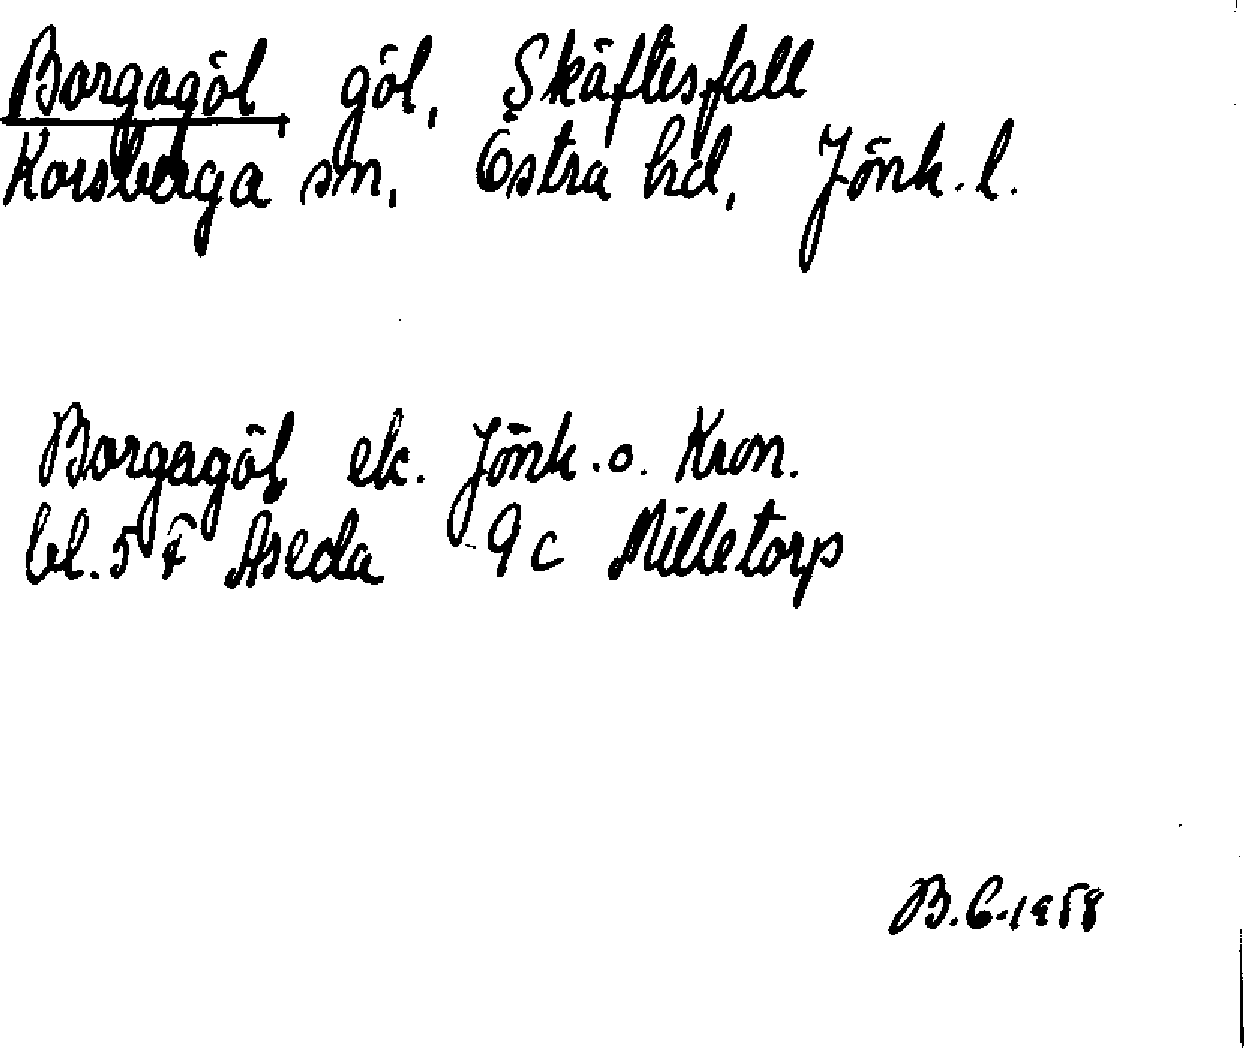 Borgagöl, göl, Skäftesfall
Korsberga sn, Östra hd, Jönk. l.
Borgagöl ek. Jönk. o. Kron.
bl. 5 F Åseda 9 c Milletorp
B. G. 1958